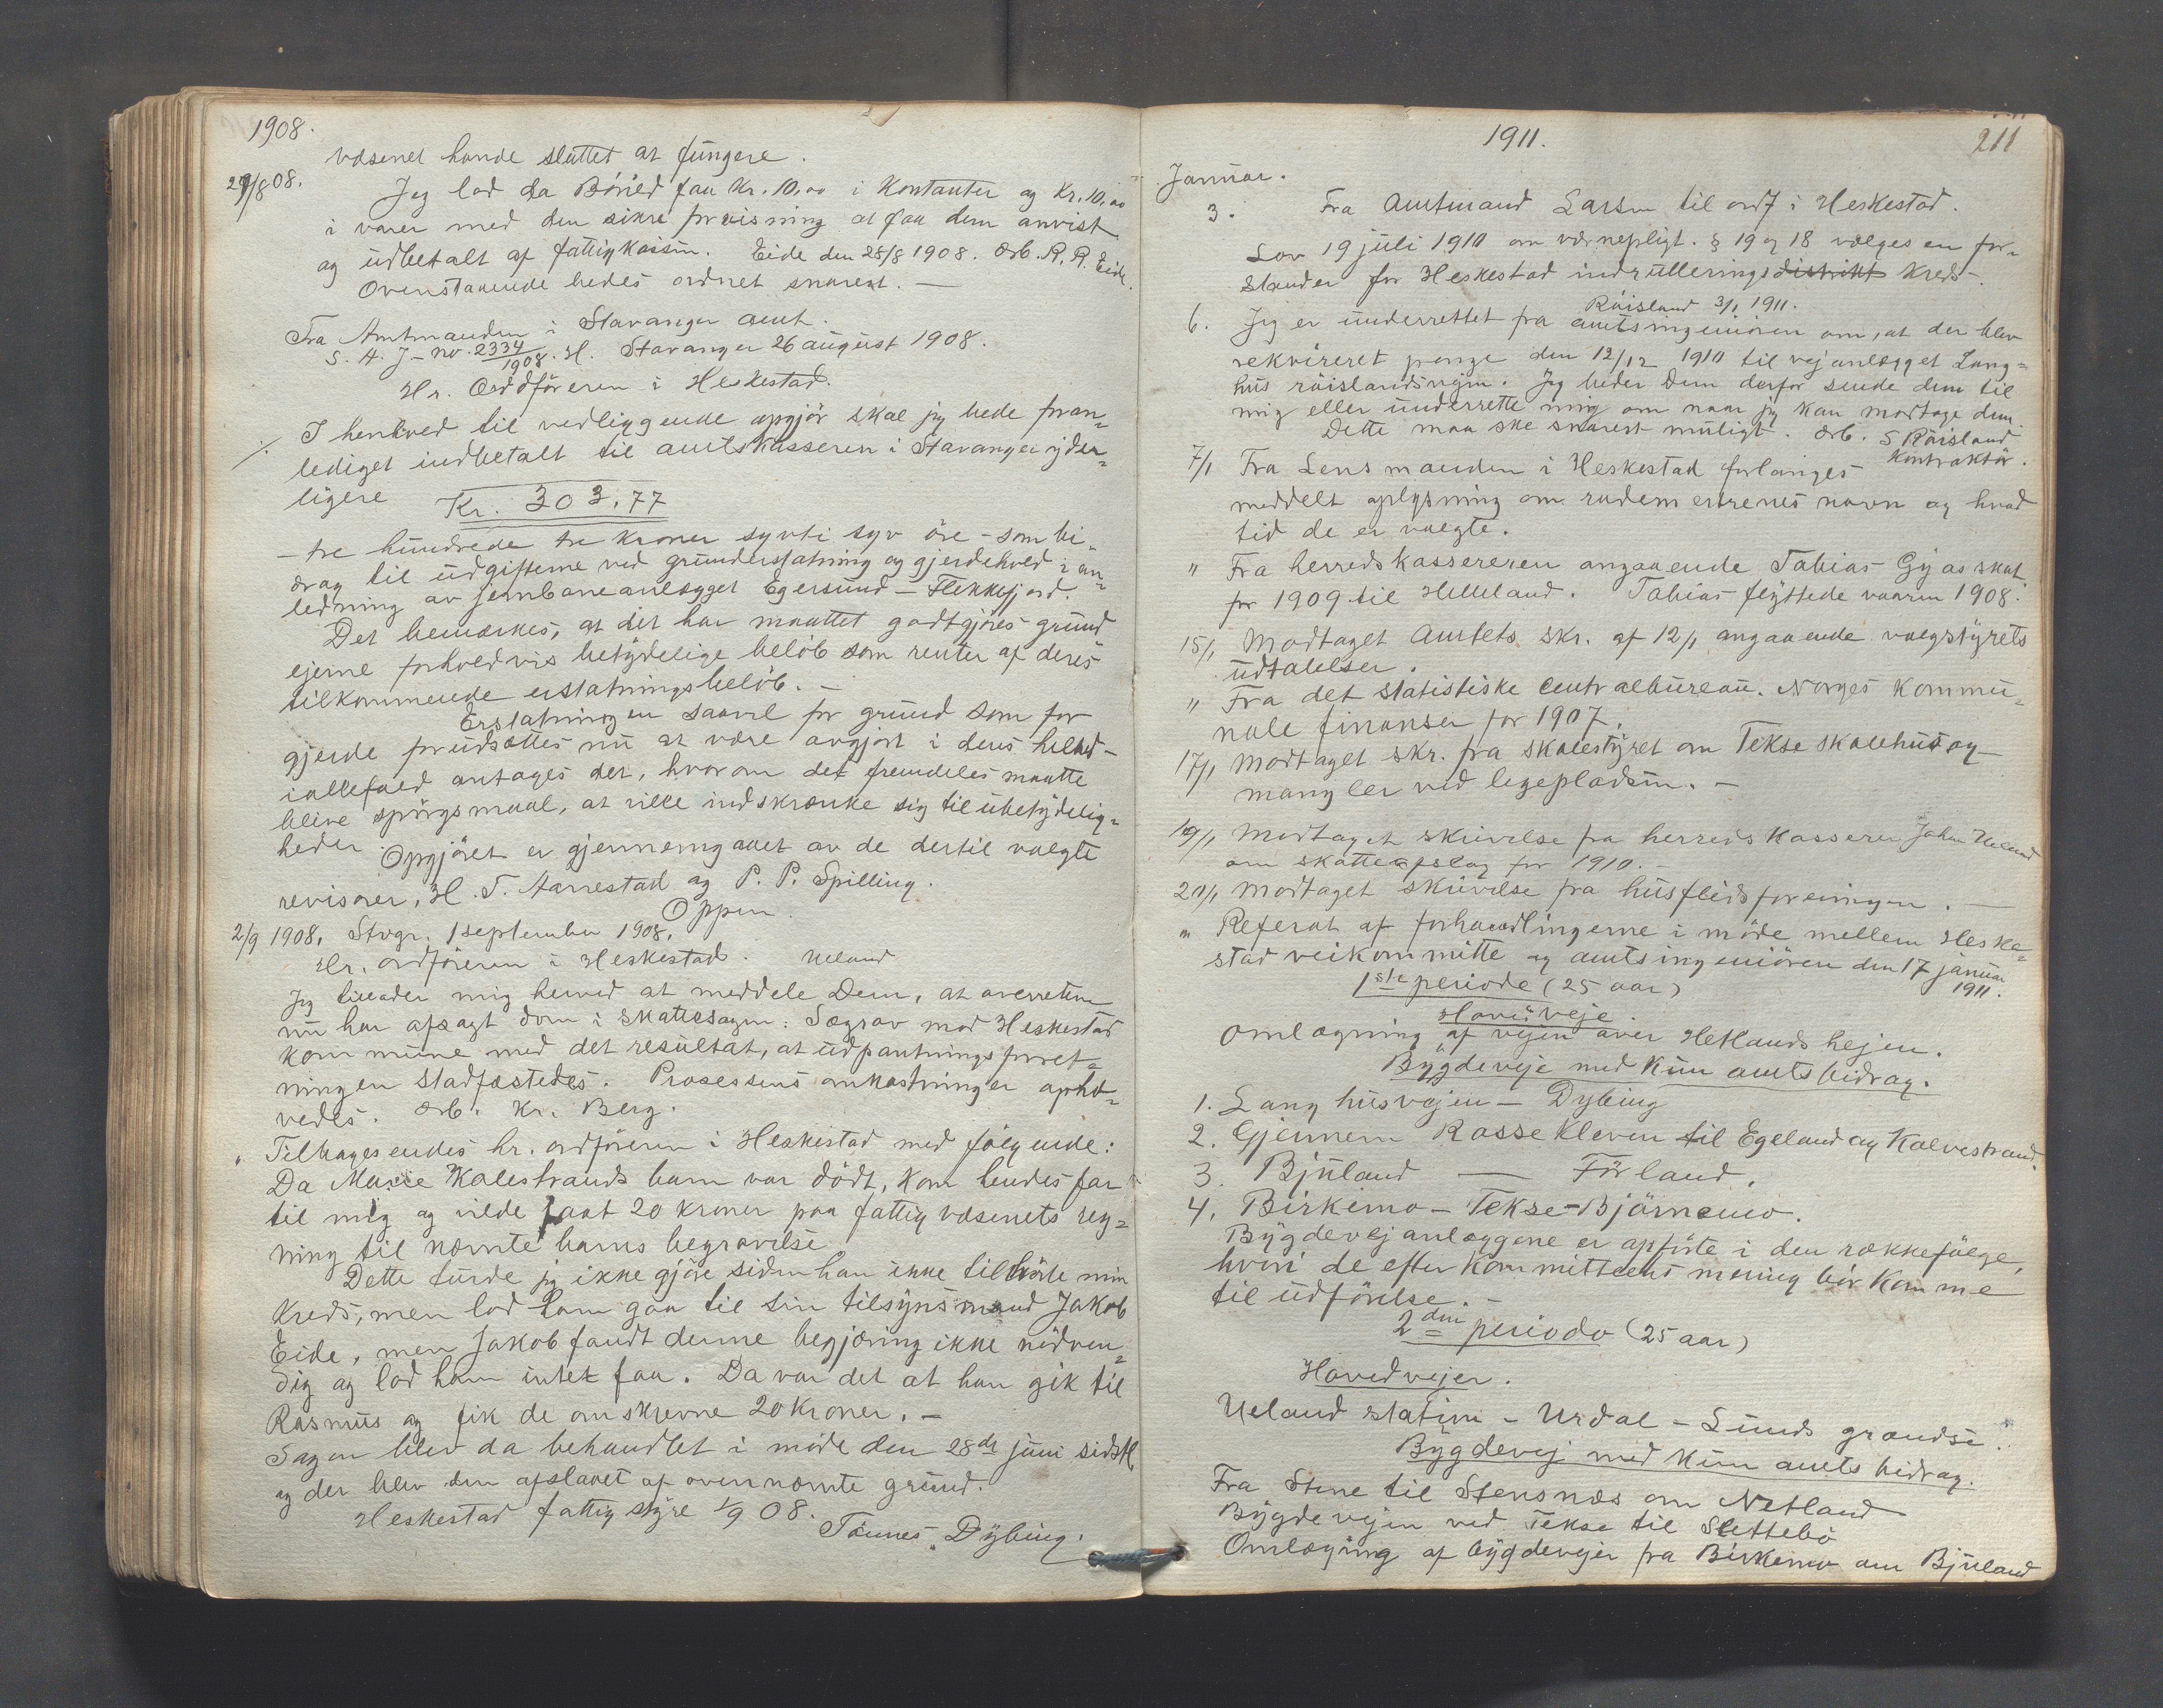 1908.
væsenet havde sluttet at fungere.
29/8 08. Jeg lod da Böried faa Kr. 10,00 i Kontanter og Kr. 10,00
i varer med den sikre forvisning at faa dem anvist
og udbetalt af fattigkassen. Eide den 28/8 1908. Ærb. R. R. Eide.
Ovenstaaende bedes ordnet snarest. —
Fra Amtmanden i Stavanger amt.
S. A. J - no. 2334/1908. H. Stavanger 26 august 1908.
Hr. Ordföreren i Heskestad.
./. I henhved til vedliggende opgjör skal jeg bede foran-
lediget indbetalt til amtskasseren i Stavanger yder-
ligere Kr. 303,77
— tre hundrede tre kroner sytti syv öre - som bi-
drag til udgifterne ved grunderstatning og gjerdehold i an-
ledning av jernbaneanlægget Egersund - Flekkefjord.
Det bemærkes, at det har maattet godtgjöres grund
ejerne forholdvis betydelige belöb som renter af deres
tilkommende erstatningsbelöb. —
Erstatningen saavel for grund som for
gjerde forudsættes nu at være avgjort i deres helhed -
iallefald antages det, hvorom det fremdeles maatte
blive spörgsmaal, at ville indskrænke sig til ubetydelig-
heder.
Opgjöret er gjennemgaaet av de dertil valgte
revisorer, H. T. Aarrestad og P. P. Spilling.
Oppen.
2/9 1908. Stvgr. 1 september 1908.
Hr. ordföreren i Heskestad. Ueland
Jeg tillader mig herved at meddele Dem, at overretten
nu har afsagt dom i skattesagen: Sægrov mod Heskestad
kommune med det resultat, at udpantningsforret-
ningen stadfæstedes. Prosessens omkostninger ophæ-
vedes. Ærb. Kr. Berg.
" Tilbagesendes hr. ordföreren i Heskestad med fölgende:
Da Marie Kalestrands barn var dödt, kom hendes far
til mig og vilde faat 20 kroner paa fattigvæsenets reg-
ning til nævnte barns begravelse
Dette turde jeg ikke gjöre siden han ikke tilhörte min
Kreds, men lod ham gaa til sin tilsynsmand Jakob
Eide, men Jakob fandt denne begjæring ikke nödven-
dig og lod ham intet faa. Da var det at han gik til
Rasmus og fik de omskrevne 20 kroner. —
Sagen blev da behandlet i möde den 28de juni sidstl.
og der blev den afslaaet af ovennævnte grund.
Heskestad fattigstyre 1/9 08.
Tönnes Dybing.
1911.
211
Januar.
3. Fra Amtmand Larsen til ordf i Heskestad.
Lov 19 juli 1910 om værnepligt. § 19 og 18 vælges en for-
stander for Heskestad indrulleringsdistrikt kreds -.
Röisland 3/1 1911.
6. Jeg er underrettet fra amtsingeniören om, at der blev
rekvireret penge den 12/12 1910 til vejanlægget Lang-
hus röislandsvejen. Jeg beder Dem derfor sende dem til
mig eller underrette mig om naar jeg kan modtage dem.
Dette maa ske snarest muligt. Ærb. S Röisland
Kontraktör.
7/1 Fra Lensmanden i Heskestad forlanges
meddelt oplysning om rodemesterenes navn og hvad
tid de er valgte.
" Fra herredskassereren angaaende Tobias Gyas skat
for 1909 til Helleland. Tobias flyttede vaaren 1908.
15/1 Modtaget Amtets skr. af 12/1 angaaende valgstyrets
udtalelser.
" Fra det statistiske centralbureau. Norges Kommu-
nale finanser for 1907.
17/1 Modtaget skr. fra skolestyret om Tekse skolehus og
mangler ved legepladsen. —
19/1 Modtaget skrivelse fra herredskasserer John Ueland
om skatteopslag for 1910. -
20/1 Modtaget skrivelse fra husflidsforeningen. —
" Referat af forhandlingerne i möde mellem Heske-
stad veikommitte og amtsingeniören den 17 januar
1911.
1ste periode (25 aar)
Hovedveje.
Omlægning af vejen over Hetlandshejen.
Bygdeveje med kun amtsbidrag.
1. Langhusvejen — Dybing
2. Gjennem Rossekleven til Egeland og Kalvestrand.
3. Bjuland — Förland.
4. Birkemo - Tekse - Björnemo.
Bygdevejanlæggene er opförte i den rækkefölge,
hvori de efter Kommitteens mening bör komme
til udförelse. -
2den periode (25 aar)
Hovedvejer.
Ueland station - Urdal - Lunds grændse.
Bygdevej med kun amtsbidrag.
Fra Stene til Stensnæs om Netland
Bygdevejen ved Tekse til Slettebö
Omlægning af bygdevejer fra Birkemo om Bjuland